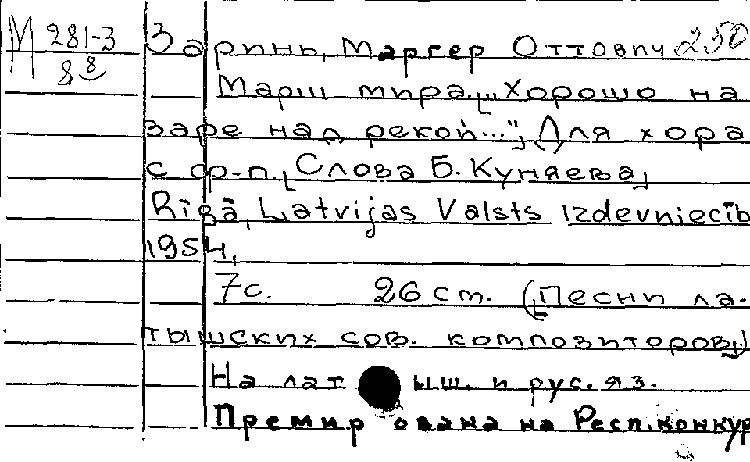 М 281-3 Заринь, Маргер Оттович 250
8 8
Марш мира. "Хорошо на
заре над рекой...", Для хора
с ф-п. Слова Б. Куняева,
Rīgā, Latvijas Valsts izdevniecīb
1954,
7 с. 26 см. (Песни ла-
тышских сов. композиторов)
На лат ыш. и рус. яз.
Премир ована на Респ. конкур